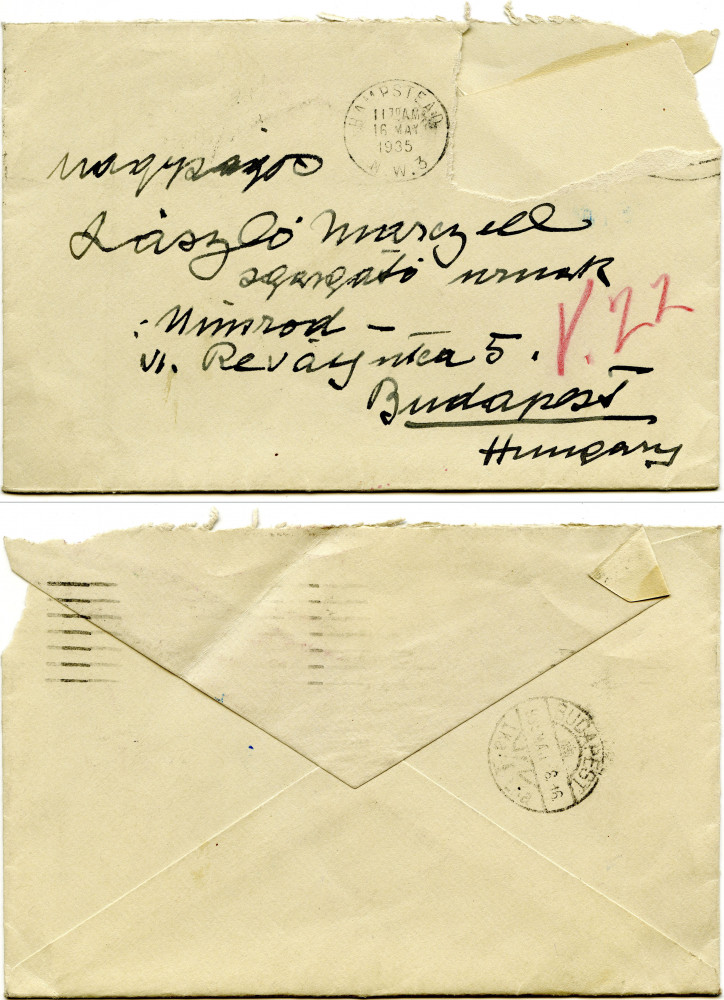 HAMPSTEAD
1130AM
16 MAY
1935
N.W.3
nagyságos
László Marczell
igazgató urnak
Nimrod –
VI. Révay utca 5.
V. 22
Budapest
Hungary
BUDAPEST